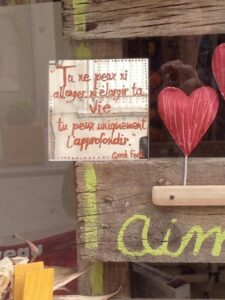 Tu ne peux ni
allonger, ni élargir ta
vie
tu peux uniquement
l'approfondir.
Gorch Fock
aim